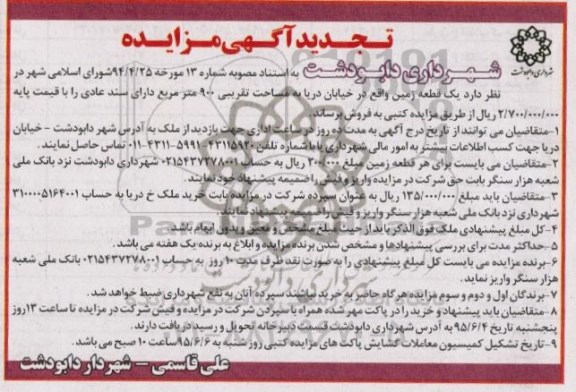 تجدید آگهی مزایده
شهرداری دابودشت
شهرداری دابودشت به استناد مصوبه شماره ۱۳ مورخه ۹۴/۴/۲۵ شورای اسلامی شهر در
نظر دارد یک قطعه زمین واقع در خیابان دریا به مساحت تقریبی ۹۰۰ متر مربع دارای سند عادی را با قیمت پایه
۲/۷۰۰/۰۰۰/۰۰۰ ریال از طریق مزایده کتبی به فروش برساند.
۱-متقاضیان می توانند از تاریخ درج آگهی به مدت ده روز در ساعت اداری جهت بازدید از ملک به آدرس شهر دابودشت - خیابان
دریا جهت کسب اطلاعات بیشتر به امور مالی شهرداری یا با شماره تلفن ۴۳۱۱۵۹۲۰ ۵۹۹۱-۴۳۱۱-۰۱۱ تماس حاصل نمایند.
۲-متقاضیان می بایست برای هر قطعه زمین مبلغ ۲۰۰/۰۰۰ ریال به حساب ۰۲۱۵۴۳۷۲۷۸۰۰۱ شهرداری دابودشت نزد بانک ملی
شعبه هزار سنگر بابت حق شرکت در مزایده واریز و فیش را ضمیمه پیشنهاد خود نمایند.
۳-متقاضیان باید مبلغ ۱۳۵/۰۰۰/۰۰۰ ریال به عنوان سپرده شرکت در مزایده بابت خرید ملک خ دریا به حساب ۳۱۰۰۰۰۵۱۶۴۰۰۱
شهرداری نزد بانک ملی شعبه هزار سنگر واریز و فیش را ضمیمه پیشنهاد نمایند.
۴-کل مبلغ پیشنهادی ملک فوق الذکر باید از حیث مبلغ مشخص و معین و بدون ابهام باشد.
۵-حداکثر مدت برای بررسی پیشنهادها و مشخص شدن برنده مزایده و ابلاغ به برنده یک هفته می باشد.
۶-برنده مزایده می بایست کل مبلغ پیشنهادی را به صورت نقد ظرف مدت ۱۰ روز به حساب ۰۲۱۵۴۳۷۲۷۸۰۰۱ بانک ملی شعبه
هزار سنگر واریز نماید.
۷-برندگان اول و دوم و سوم مزایده هر گاه حاضر به خرید نباشند سپرده آنان به نفع شهرداری ضبط خواهد شد.
۸-متقاضیان باید پیشنهاد و خرید را در پاکت مهر شده همراه با سپردن شرکت در مزایده و فیش شرکت در مزایده تا ساعت ۱۳ روز
پنجشنبه تاریخ ۹۵/۶/۴ به آدرس شهرداری دابودشت قسمت دبیرخانه تحویل و رسید دریافت دارند.
۹-تاریخ تشکیل کمیسیون معاملات گشایش پاکت های مزایده کتبی روز شنبه به ۹۵/۶/۶ ساعت ۱۰ صبح می باشد.
علی قاسمی - شهردار دابودشت